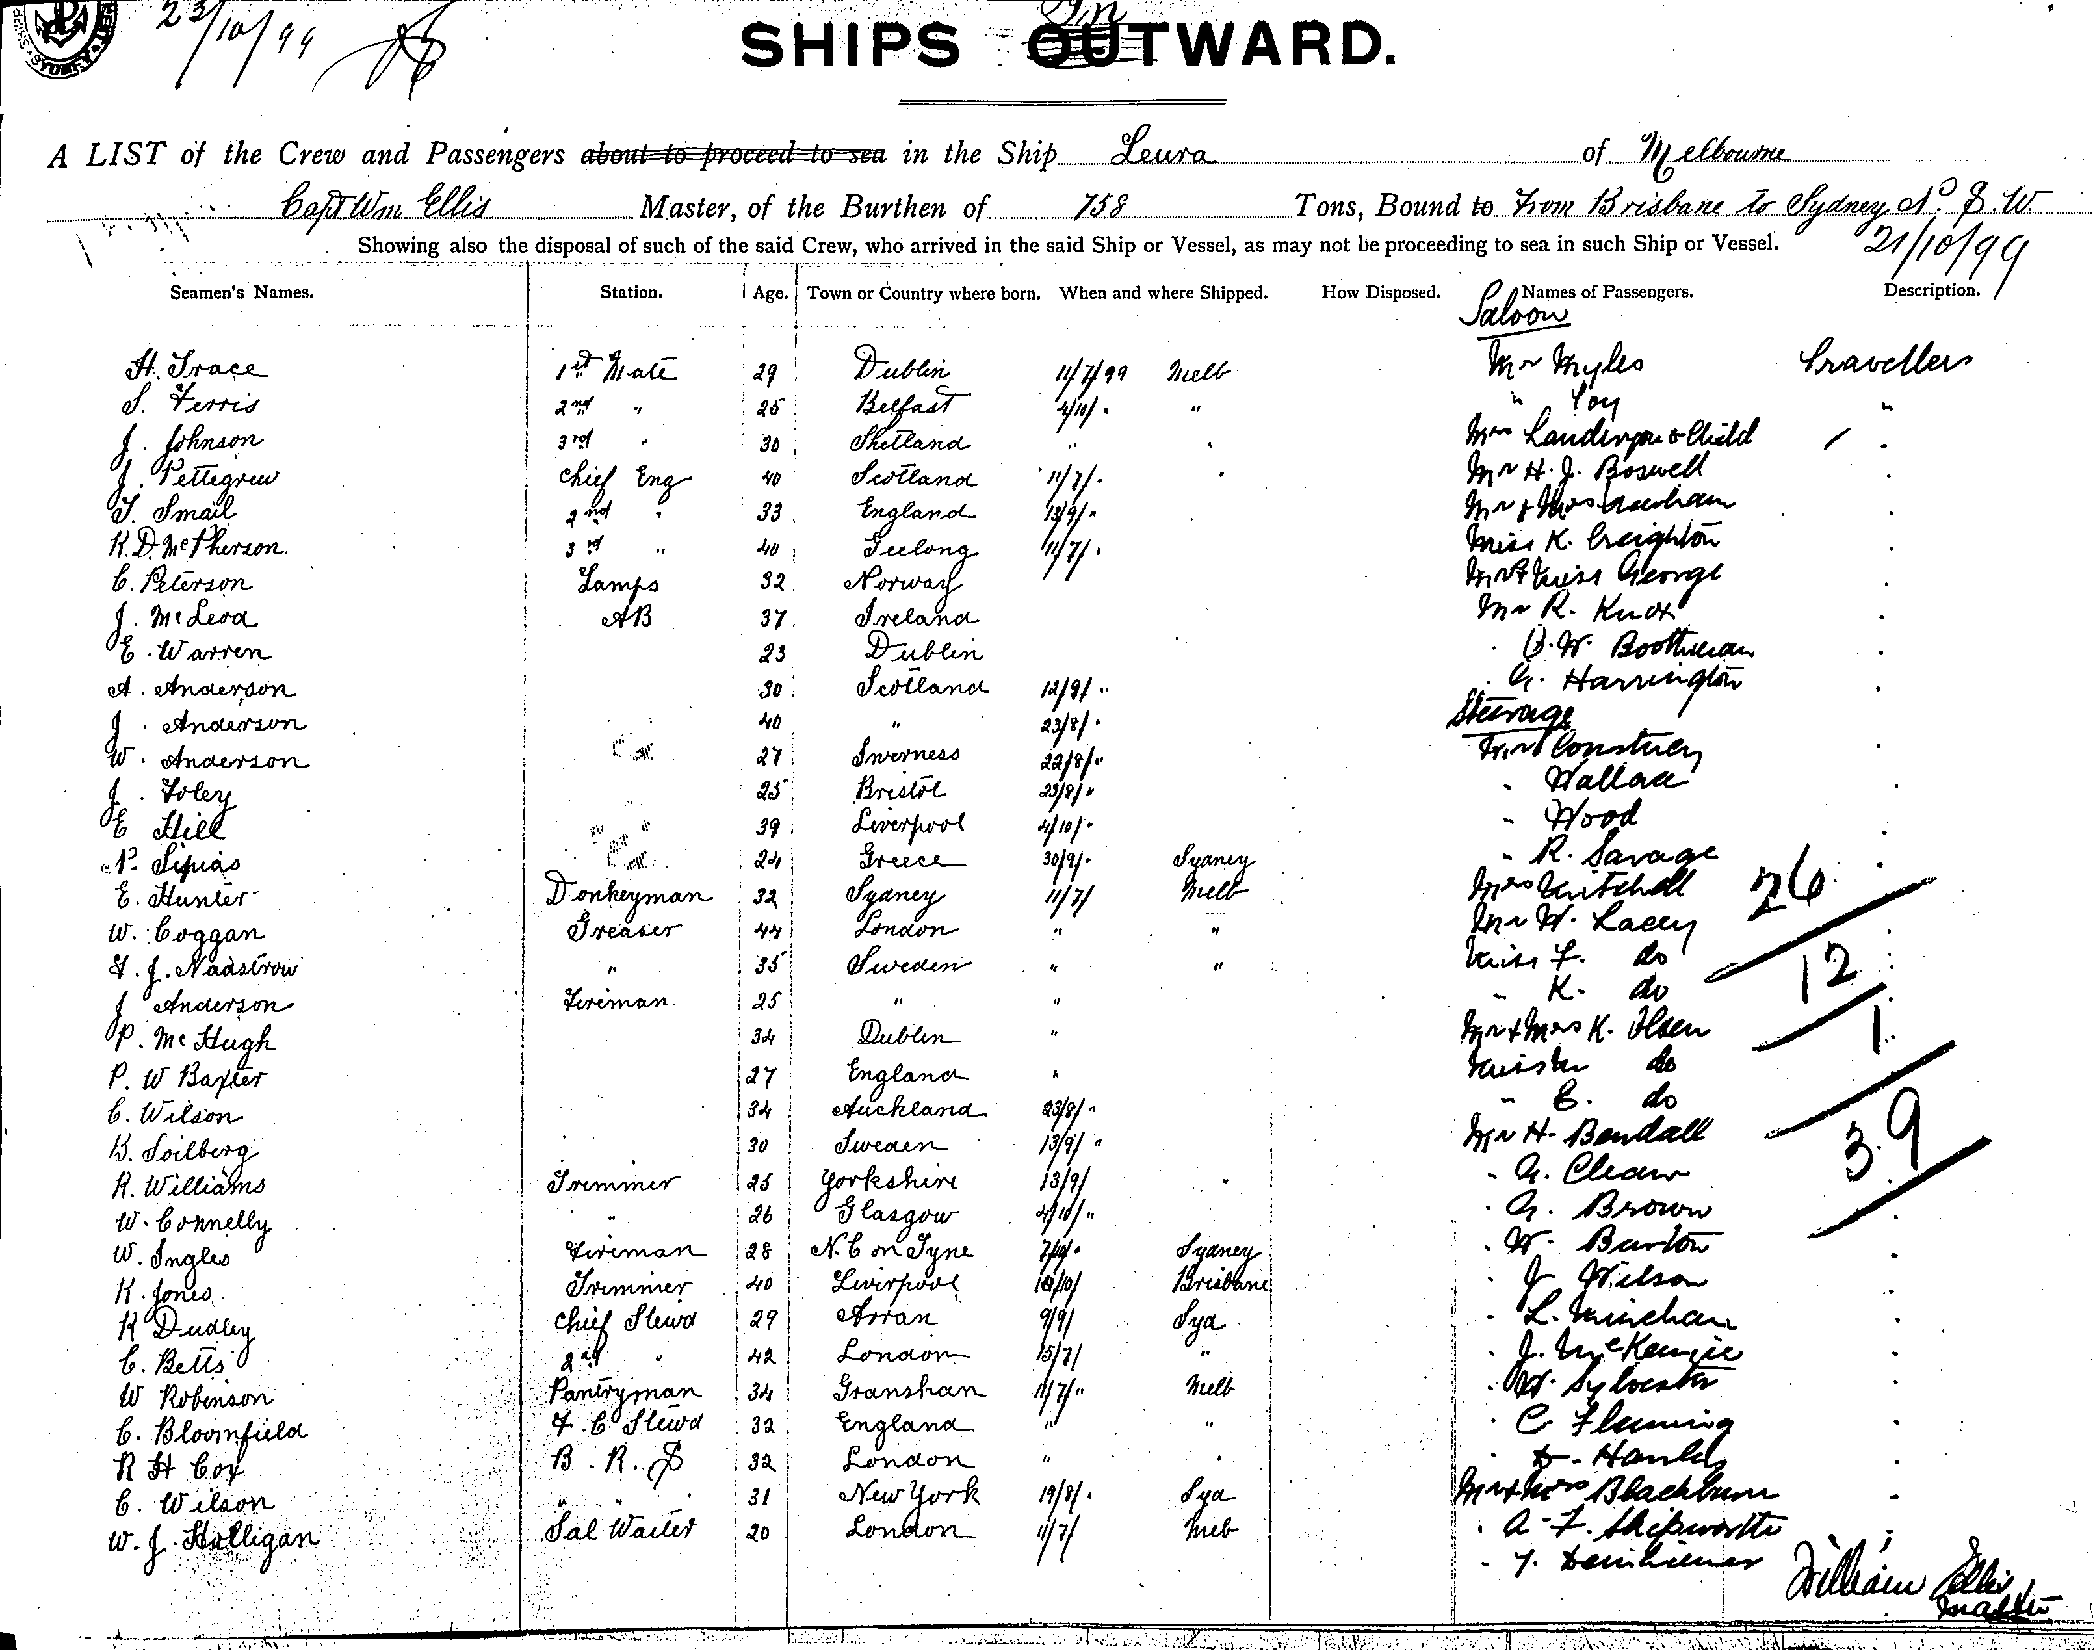 23/10/99
SHIPS OUTWARD.
In
A LIST of the Crew and Passengers about to proceed to sea in the Ship Leura of Melbourne
Capt Wm Ellis Master, of the Burthen of 758 Tons, Bound to From Brisbane to Sydney N.S.W.
Showing also the disposal of such of the said Crew, who arrived in the said Ship or Vessel, as may not be proceeding to sea in such Ship or Vessel. 21/10/99
Seamen's Names. Station. Age. Town or Country where born. When and where Shipped. How Disposed. Names of Passengers. Description.
Saloon
H. Trace 1st Mate 29 Dublin 11/7/99 Melb Mr Myles Travellers
S. Ferris 2nd " 25 Belfast 4/10/ " " Foy "
J. Johnson 3rd " 30 Shetland " Mrs & Child
J. Pettegrew Chief Eng 40 Scotland 11/7/ Mr H. J. Boswell
T. Smail 2nd " 33 England 13/9/ Mr & Mrs
K. D. McPherson 3rd " 40 Geelong 11/7/ Miss K. Creighton
C. Peterson Lamps 32 Norway Mr & Miss George
J. McLeod AB 37 Ireland Mr R. Knox
E. Warren 23 Dublin W. Boothman
A. Anderson 30 Scotland 12/9/ " G. Harrington
J. Anderson 40 " 23/8/ Steerage
W. Anderson 27 Inverness 22/8/ Mr
J. Foley 25 Bristol 23/8/ Wallace
E Hill 39 Liverpool 4/10/ " Wood
N. 24 Greece 30/9/ Sydney " R. Savage
E. Hunter Donkeyman 32 Sydney 11/7/ Melb Mrs Mitchell 26
W. Coggan Greaser 44 London " " Mr W. Lacey
H. J. Nadstrow " 35 Sweden " " Miss F. do 12
J Anderson Fireman 25 " " " K. do
P. McHugh 34 Dublin " Mr & Mrs K. Olsen 1
P. W Baxter 27 England " do
C. Wilson 34 Auckland 23/8/ " E. do
B. Soilberg 30 Sweden 13/9/ " Mr H. Bendall 39
R. Williams Trimmer 25 Yorkshire 13/9/ G. Clear
W. Connelly " 26 Glasgow 4/10/ " G. Brown
W. Ingles Fireman 28 N. C on Tyne Sydney W. Burton
K. Jones Trimmer 40 Liverpool Brisbane J Wilson
K Dudley Chief Stewd 29 Arran 9/9/ Syd L. Minehan
C. Betts 2nd " 42 London 15/7/ " J. McKenzie
W Robinson Pantryman 34 Granshan 11/7/ " Melb W. Sylvester
C. Bloomfield F. C Stewd 32 England " " C Fleming
R H Cox B. R. S 32 London " Hanley
C. Wilson " " 31 New York 19/8/ Syd Mr & Mrs Blackburn
W. J. Halligan Sal Waiter 20 London 11/7/ Melb A. F. Skipworth
William Ellis
Master